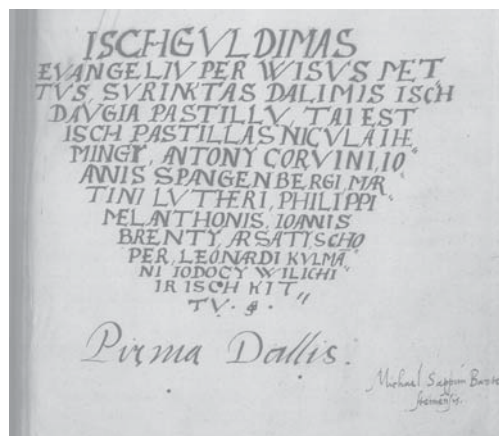 ISCHGVLDIMAS
EVANGELIV PER WISVS MET,
TVS, SVRINKTAS DALIMIS ISCH
DAVGIA PASTILLV, TAI EST
ISCH PASTILLAS NICVLAI HE
MINGY, ANTONY CORVINI, IO
ANNIS SPANGENBERGI, MAR
TINI LVTHERI, PHILIPPI
MELANTHONIS, IOANNIS
BRENTY, ARSATY, SCHO
PER, LEONARDI KVLMA
NI IODOCY WILICHI
IR ISCH KIT
TV.
Pirma Dallis.
Michael Sappun